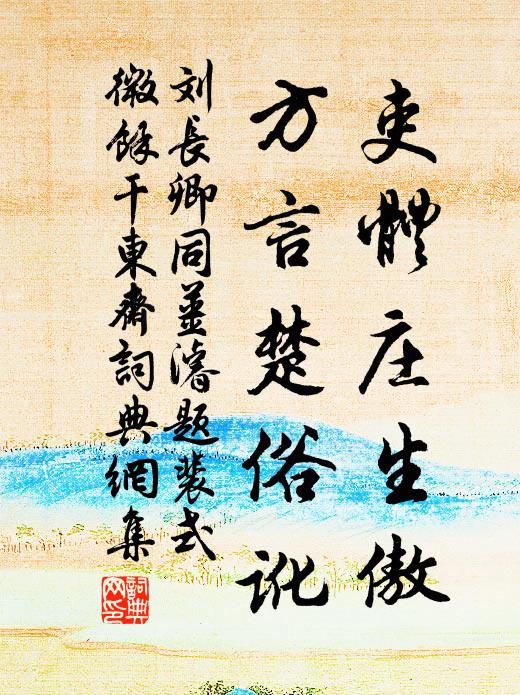 吏體庄生傲
方言楚俗訛
刘長卿同姜濬題裴式
微餘干東齋詞典網集